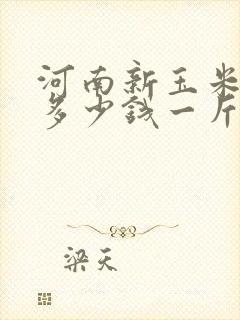 河南新玉米
多少钱一斤
梁天